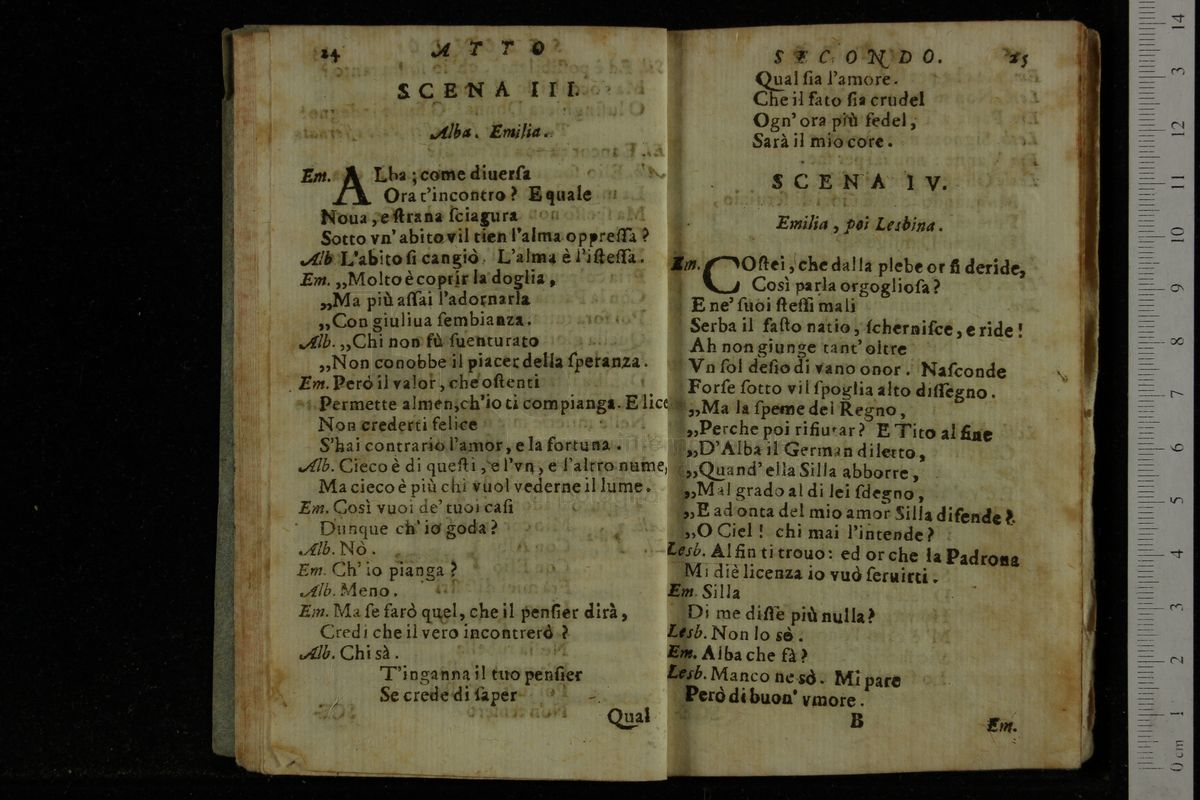 24 ATTO
SCENA III.
Alba. Emilia.
Em. ALba ; come diuerſa
Ora t'incontro ? E quale
Noua , e ſtrana ſciagura
Sotto vn' abito vil tien l'alma oppreſſa ?
Alb L'abito ſi cangiò. L'alma è l'iſteſſa.
Em. ,,Molto è coprir la doglia ,
,,Ma più aſſai l'adornarla
,,Con giuliua ſembianza.
Alb. ,,Chi non fù ſuenturato
,,Non conobbe il piacer della ſperanza.
Em. Però il valor, che oſtenti
Permette almen, ch'io ti compianga. E lice
Non crederti felice
S'hai contrario l'amor, e la fortuna.
Alb. Cieco è di queſti , e l'vn, e l'altro nume,
Ma cieco è più chi vuol vederne il lume.
Em. Così vuoi de' tuoi caſi
Dunque ch' io goda ?
Alb. Nò.
Em. Ch' io pianga ?
Alb. Meno.
Em. Ma ſe farò quel, che il penſier dirà,
Credi che il vero incontrerò ?
Alb. Chi sà.
T'inganna il tuo penſier
Se crede di ſaper
Qual
SECONDO. 25
Qual ſia l'amore.
Che il fato ſia crudel
Ogn' ora più fedel,
Sarà il mio core.
SCENA IV.
Emilia , poi Lesbina.
Em. COſtei, che dalla plebe or ſi deride,
Così parla orgoglioſa ?
E ne' ſuoi ſteſſi mali
Serba il faſto natio, ſcherniſce, e ride !
Ah non giunge tant' oltre
Vn ſol deſio di vano onor. Naſconde
Forſe ſotto vil ſpoglia alto diſſegno.
,,Ma la ſpeme del Regno,
,,Perche poi rifiutar ? E Tito al fine
,,D'Alba il German diletto,
,,Quand' ella Silla abborre,
,,Mal grado al di lei ſdegno,
,,E ad onta del mio amor Silla difende ?
,,O Ciel ! chi mai l'intende ?
Lesb. Al fin ti trouo : ed or che la Padrona
Mi diè licenza io vuó ſeruirti.
Em. Silla
Di me diſſe più nulla ?
Lesb. Non lo sò.
Em. Alba che fà ?
Lesb. Manco ne sò. Mi pare
Però di buon' vmore.
B Em.